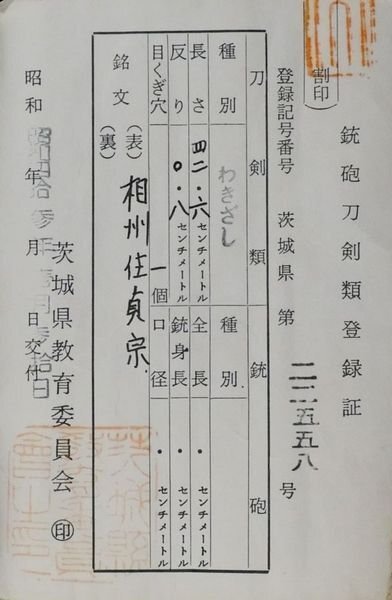 銃砲刀剣類登録証
(割印)
登録記号番号 茨城県 第 二二五五八 号
刀剣類 銃砲
種別 わきざし 種別
長さ 四二・六センチメートル 全長 ・センチメートル
反り 〇・八センチメートル 銃身長 ・センチメートル
目くぎ穴 一個 口径 ・センチメートル
銘文 (表) 相州住貞宗
(裏)
茨城県教育委員会 ㊞
昭和 年 月 日交付